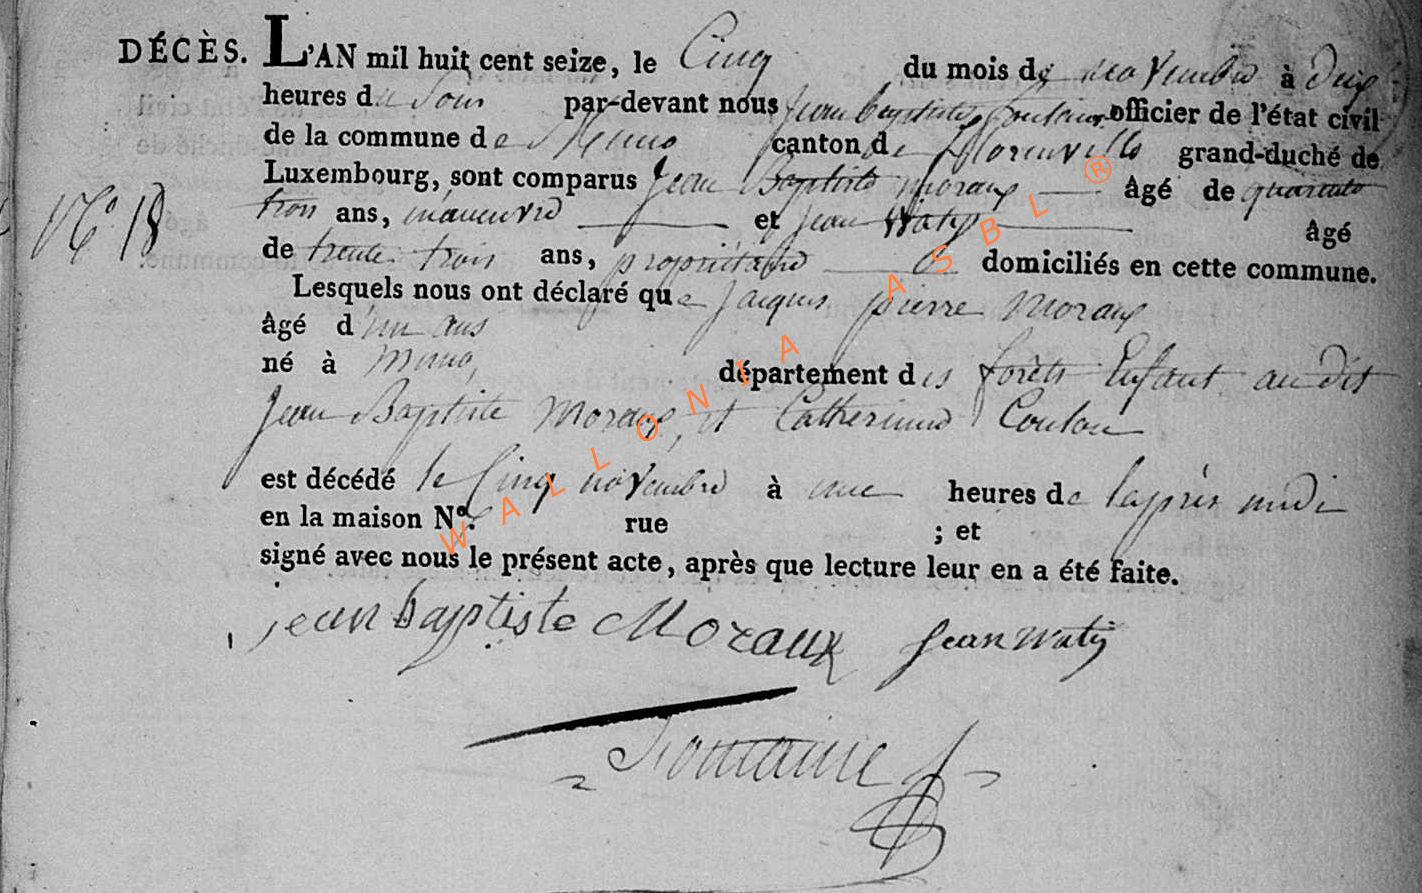 DÉCÈS. L'AN mil huit cent seize, le Cinq du mois de novembre à deux
heures du Soir par-devant nous jean baptiste officier de l'état civil
de la commune de Muno canton de florenville grand-duché de
Luxembourg, sont comparus Jean Baptiste moraux âgé de quarante
N.° 18
trois ans, manœuvre et jean Watiy âgé
de trente trois ans, propriétaire domiciliés en cette commune.
Lesquels nous ont déclaré que Jacques pierre Moraux
âgé d'un ans
né à muno, département des forêts Enfant au dit
Jean Baptiste Moraux, et Catherinne Coulon
est décédé le Cinq novembre à une heures de laprès midi
en la maison N°. rue ; et
signé avec nous le présent acte, après que lecture leur en a été faite.
jean baptiste Moraux jean watiy
WALLONIA ASBL ®